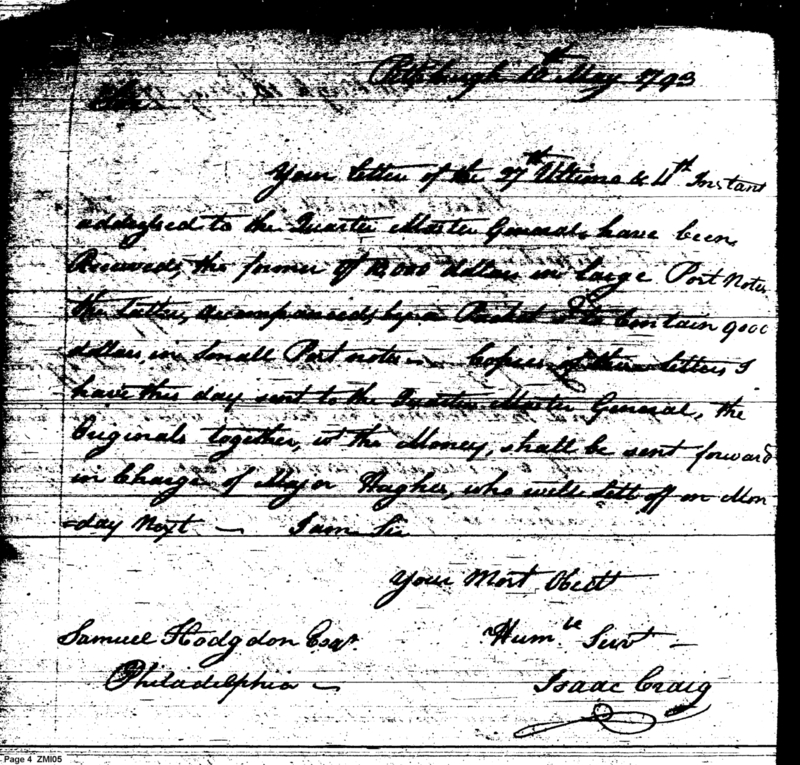 Pittsburgh May 1793
Sir
Your letter of the 27th Ultimo & 4th Instant
addressed to the Quarter Master General, have been
Received, the former of dollars in large Port Notes
the latter, accompanied by a Packet to Contain 9000
dollars in Small Port notes — Copies of these letters I
have this day sent to the Quarter Master General, the
Originals together, wt the Money, shall be sent forward
in Charge of Major Hughes, who will Sett off on Mon
=day Next — I am Sir
Your Most Obedt
Humble Servt —
Samuel Hodgdon Esqr.
Philadelphia —
Isaac Craig
Page 4 ZMI05